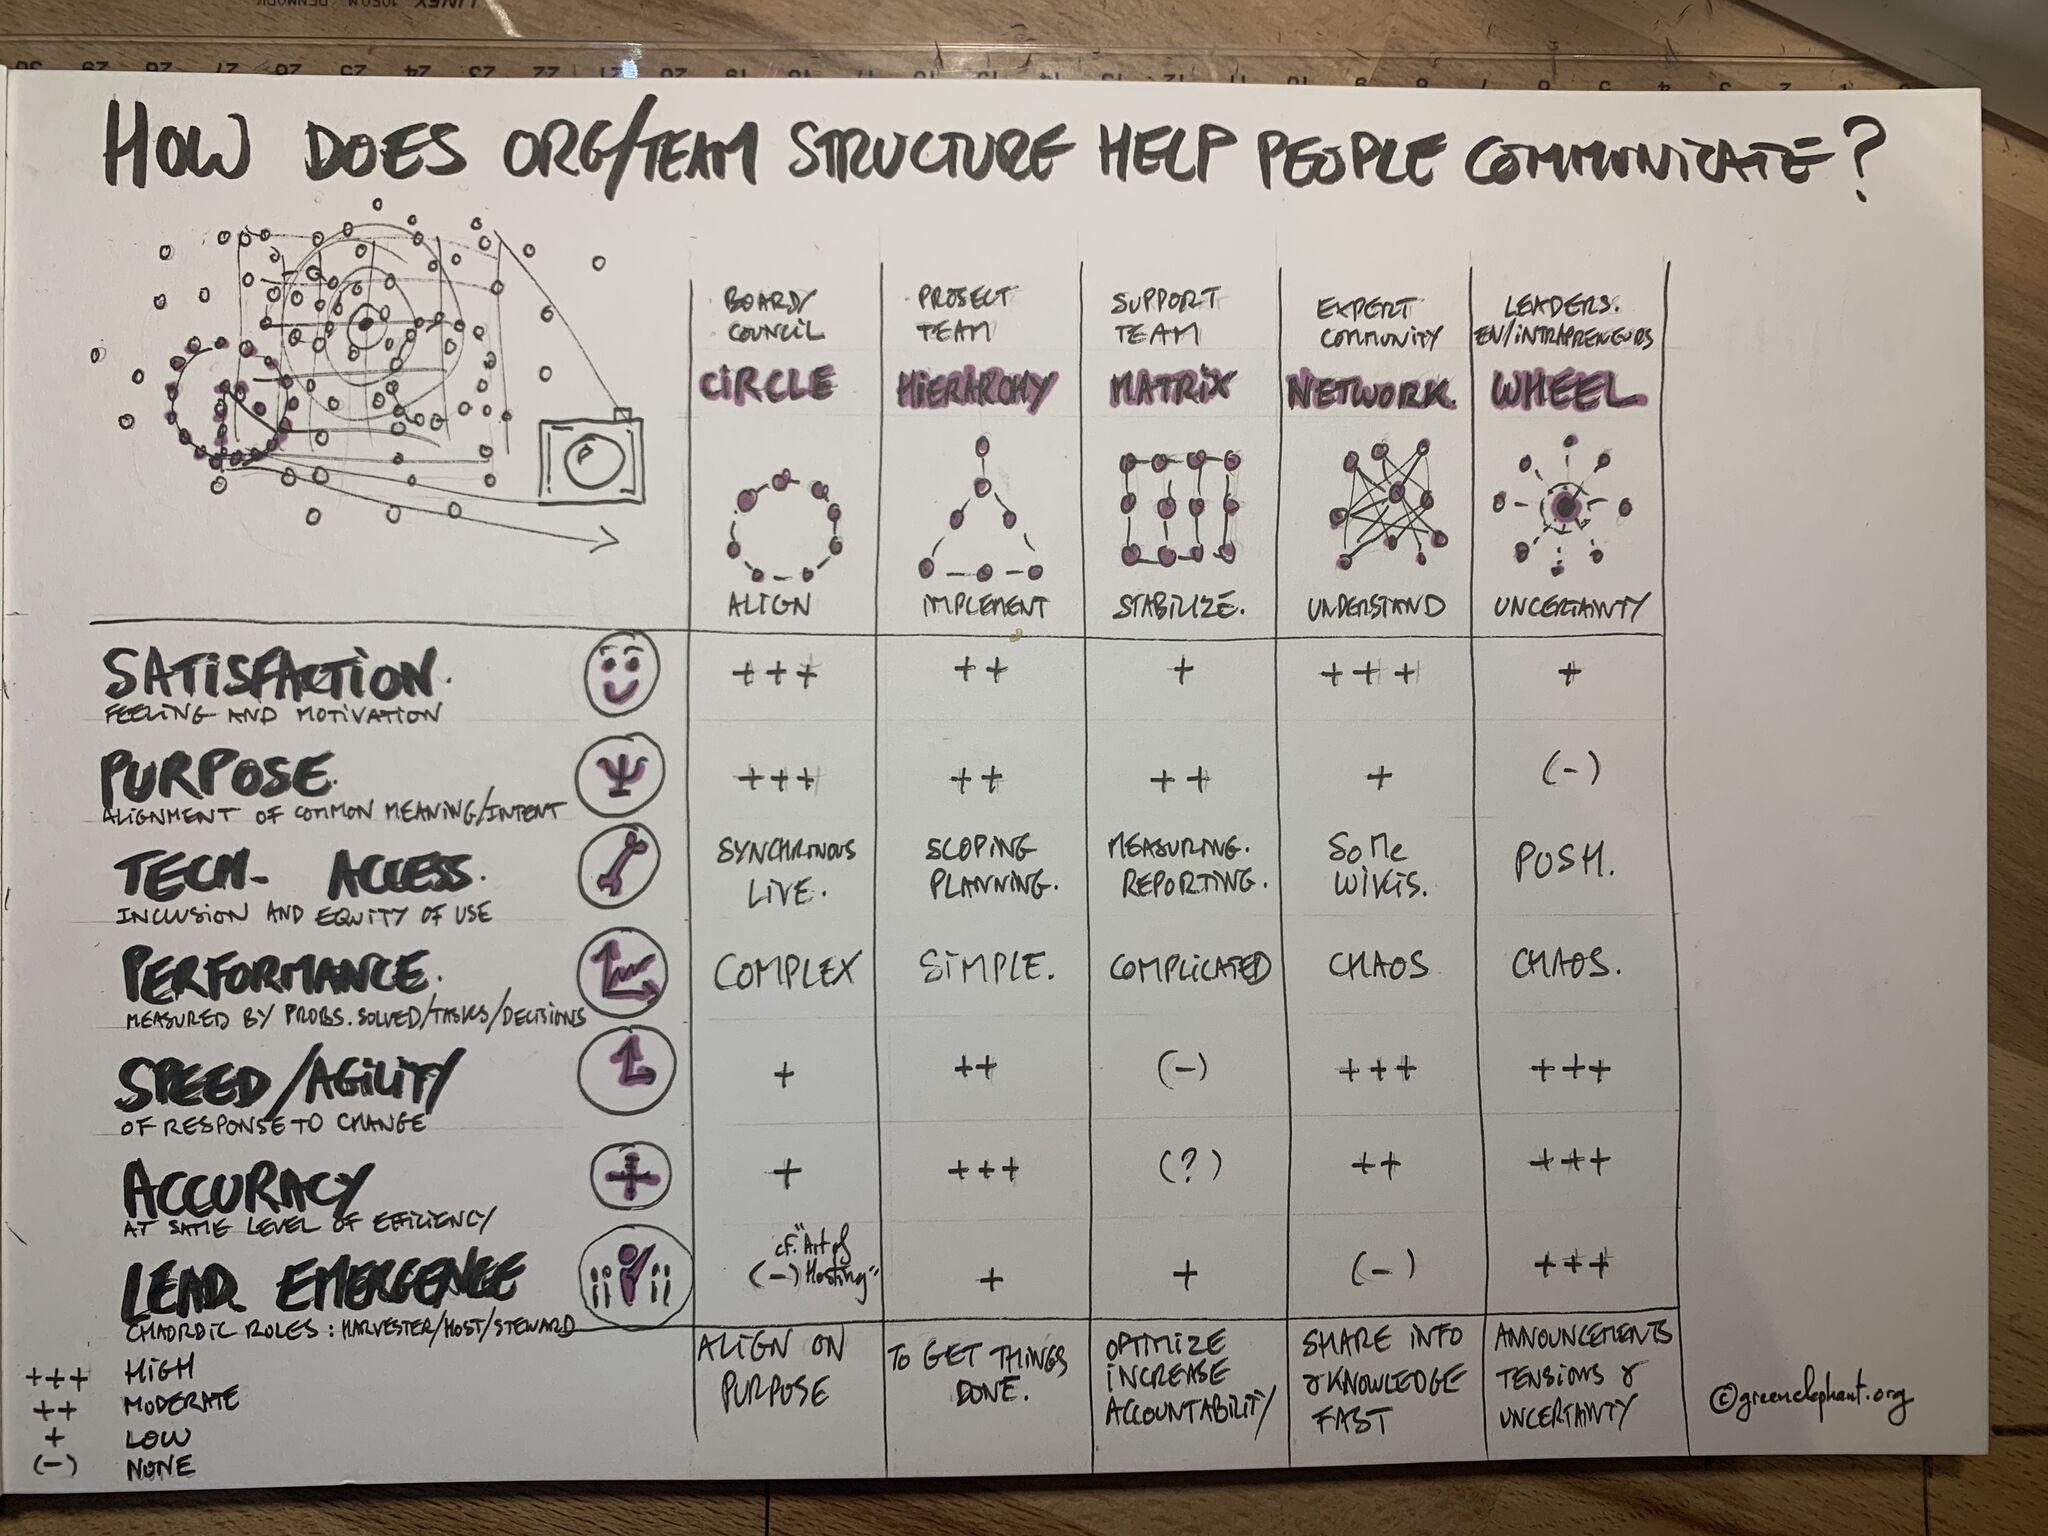 LINEX
30 29 28 27 26 25 24 23 22 21 20 19 18 17 16 15 14 13 12 11 10 9 8 7 6 5 4 3 2 1
HOW DOES ORG/TEAM STRUCTURE HELP PEOPLE COMMUNICATE?
BOARD/
COUNCIL
CIRCLE
ALIGN
PROJECT
TEAM
HIERARCHY
IMPLEMENT
SUPPORT
TEAM
MATRIX
STABILIZE.
EXPERT
COMMUNITY
NETWORK.
UNDERSTAND
LEADERS.
EN/INTRAPRENEURS
WHEEL
UNCERTAINTY
SATISFACTION.
FEELING AND MOTIVATION
+++ ++ + +++ +
PURPOSE.
ALIGNMENT OF COMMON MEANING/INTENT
+++ ++ ++ + (-)
TECH- ACCESS.
INCLUSION AND EQUITY OF USE
SYNCHRINOUS
LIVE.
SCOPING
PLANNING.
MEASURING.
REPORTING.
SoMe
WIKIS.
PUSH.
PERFORMANCE.
MEASURED BY PROBS. SOLVED/TASKS/DECISIONS
COMPLEX SIMPLE. COMPLICATED CHAOS CHAOS.
SPEED/AGILITY
OF RESPONSE TO CHANGE
+ ++ (-) +++ +++
ACCURACY
AT SAME LEVEL OF EFFICIENCY
+ +++ (?) ++ +++
LEAD. EMERGENCE
CHAORDIC ROLES: HARVESTER/HOST/STEWARD
cf. "Art of
(-) Hosting"
+ + (-) +++
ALIGN ON
PURPOSE
TO GET THINGS
DONE.
OPTIMIZE
INCREASE
ACCOUNTABILITY
SHARE INFO
& KNOWLEDGE
FAST
ANNOUNCEMENTS
TENSIONS &
UNCERTAINTY
+++ HIGH
++ MODERATE
+ LOW
(-) NONE
©greenelephant.org